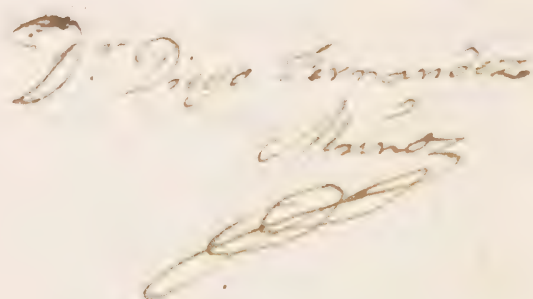 D.ⁿ Diego Fernandez
Munoz